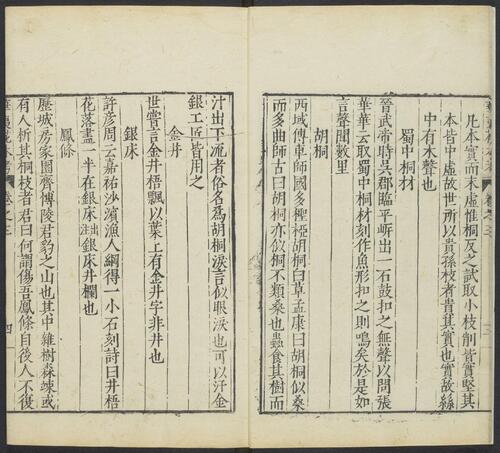 凡木實而末虛惟桐反之試取小枝削皆實堅其
本皆中虛故世所以貴孫枝者貴其實也實故絲
中有木聲也
蜀中桐材
晉武帝時吳郡臨平岍出一石鼓扣之無聲以問張
華華云取蜀中桐材刻作魚形扣之則鳴矣於是如
言聲聞數里
胡桐
西域傳車師國多檉檉胡桐白草孟康曰胡桐似桑
而多曲師古曰胡桐亦似桐不類桑也蟲食其樹而
汁出下流者俗名為胡桐淚言似眼淚也可以汗金
銀工匠皆用之
金井
世嘗言金井梧飄以葉上有金井字非井也
銀床
許彥周云嘉祐沙濵漁人網得一小石刻詩曰井梧
花落盡一半在銀床注銀床井欄也
鳳條
歷城房家園齊博陵君豹之山也其中雜樹森竦或
有人折其桐枝者君曰何謂傷吾鳳條自後人不復
卷之三
四